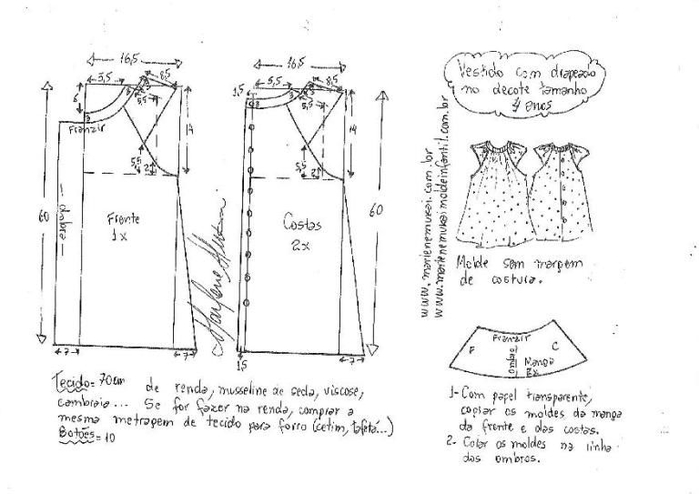 16,5
5,5
8,5
3
5,5
6
Franzir
14
60
dobra
5,5
2
Frente
1x
7
7
16,5
1,5
5,5
8,5
3
5,5
14
5,5
2
60
Costas
2x
1,5
7
Marlene Mukai
Vestido com drapeado
no decote tamanho
4 anos
www.marlenemukai.com.br
www.marlenemukaimoldeinfantil.com.br
Molde sem margem
de costura.
Franzir
F
C
ombro
Manga
2x
1- Com papel transparente,
copiar os moldes da manga
da frente e das costas.
2- Colar os moldes na linha
dos ombros.
Tecido = 70cm de renda, musseline de seda, viscose,
cambraia... Se for fazer na renda, comprar a
mesma metragem de tecido para forro (cetim, tafetá...)
Botões = 10